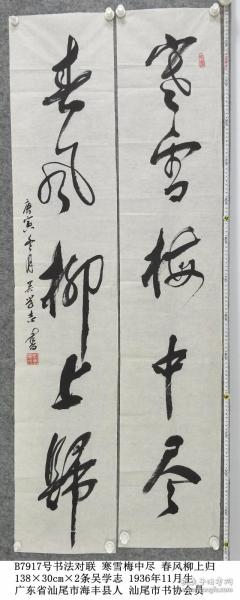 寒雪梅中尽
春风柳上歸
庚寅冬月吴学志書
B7917号书法对联 寒雪梅中尽 春风柳上归
138×30cm×2条吴学志 1936年11月生
广东省汕尾市海丰县人 汕尾市书协会员